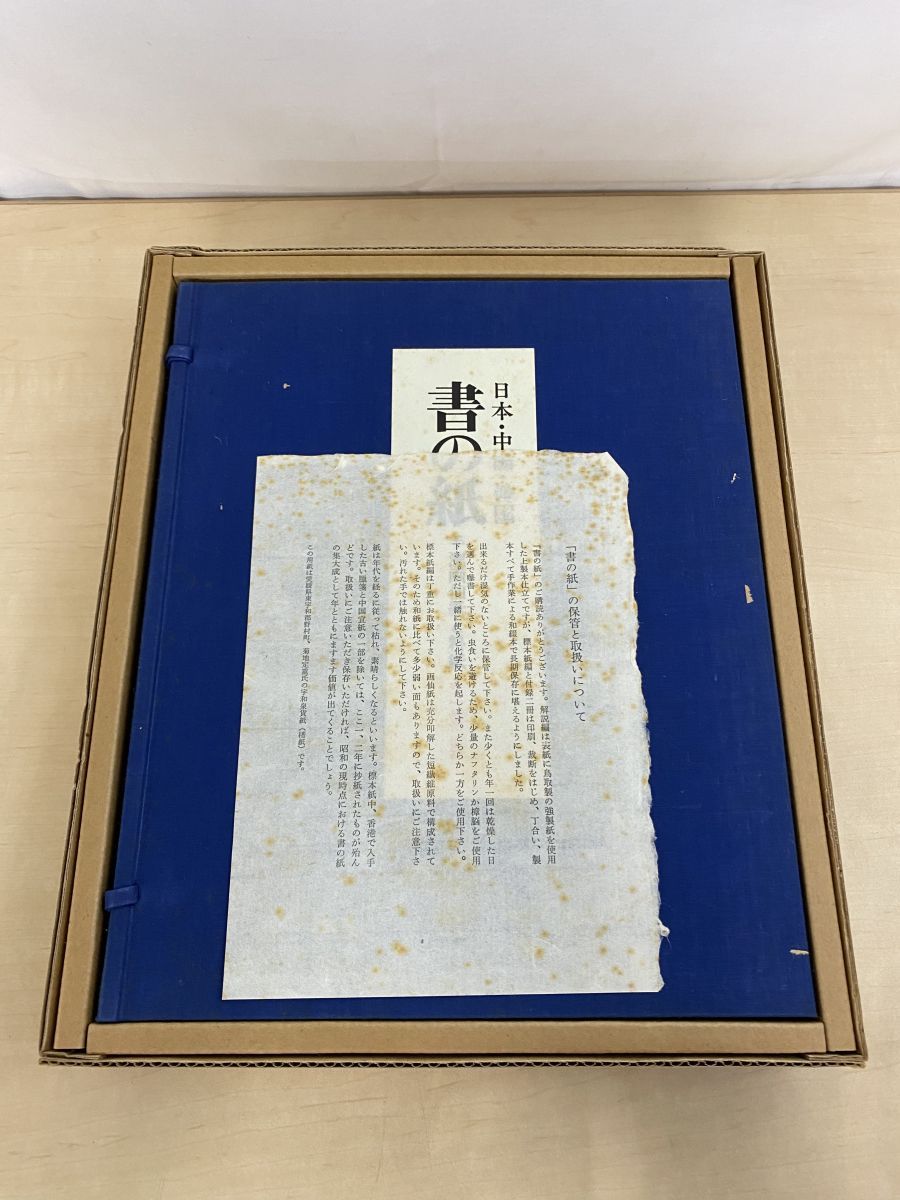 日本・中
書の紙
「書の紙」の保管と取扱いについて
「書の紙」のご購読ありがとうございます。解説編は表紙に鳥取製の強製紙を使用
した上製本仕立てですが、標本紙編と付録二冊は印刷、裁断をはじめ、丁合い、製
本すべて手作業による和綴本で長期保存に堪えるようにしました。
出来るだけ湿気のないところに保管して下さい。また少くとも年一回は乾燥した日
を選んで曝書して下さい。虫食いを避けるため、少量のナフタリンか樟脳をご使用
下さい。ただし一緒に使うと化学反応を起します。どちらか一方をご使用下さい。
標本紙編は丁重にお取扱い下さい。画仙紙は充分叩解した短繊維原料で構成されて
います。そのため和紙に比べて多少弱い面もありますので、取扱いにご注意下さ
い。汚れた手では触れないようにして下さい。
紙は年代を経るに従って枯れ、素晴らしくなるといいます。標本紙中、香港で入手
した古い臘箋と中国宣紙の一部を除いては、ここ一、二年に抄紙されたものが殆ん
どです。取扱いにご注意いただき保存いただければ、昭和の現時点における書の紙
の集大成として年とともにますます価値が出てくることでしょう。
この用紙は愛媛県東宇和郡野村町、菊地定重氏の宇和泉貨紙（楮紙）です。